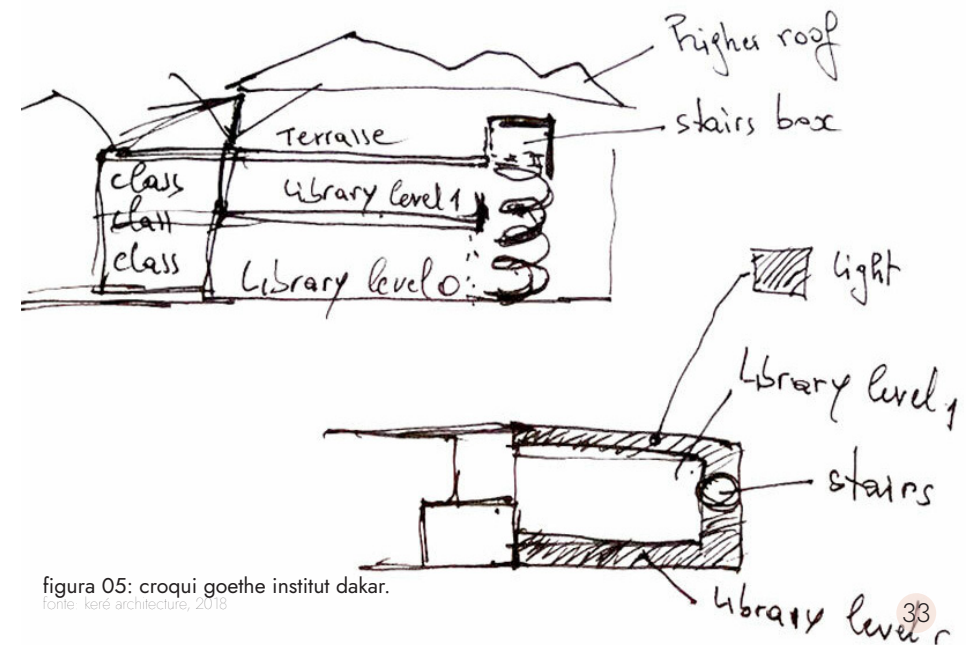 Higher roof
stairs box
Terrasse
class
Library level 1
class
class
Library level 0
light
Library level 1
stairs
Library level
figura 05: croqui goethe institut dakar.
fonte: keré architecture, 2018
33